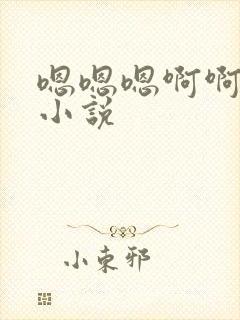 嗯嗯嗯啊啊
小說
小束邪